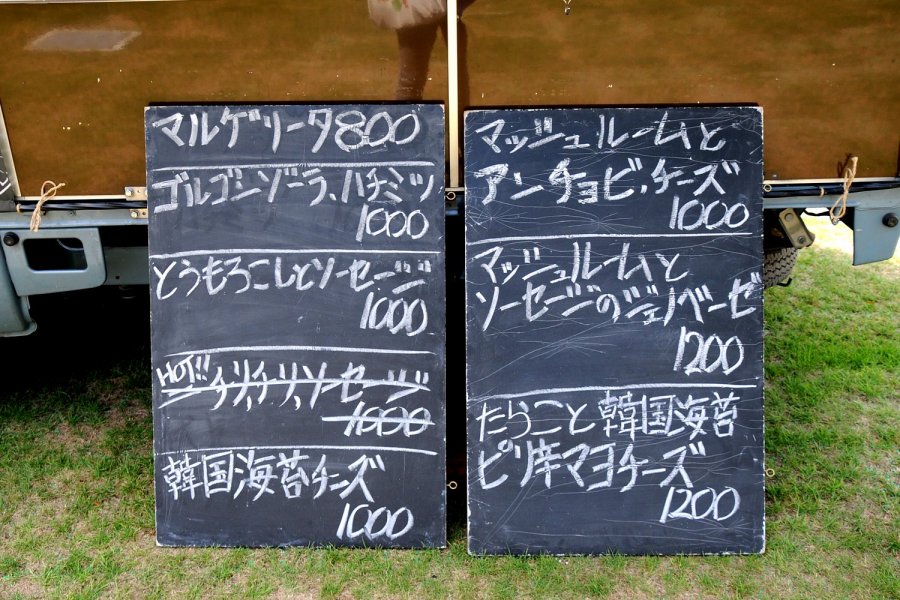 マルゲリータ800
ゴルゴンゾーラ、ハチミツ
1000
とうもろこしとソーセージ
1000
HOT!! チリ,チリ,ソーセージ
1000
韓国海苔チーズ
1000
マッシュルームと
アンチョビ、チーズ
1000
マッシュルームと
ソーセージのジェノベーゼ
1200
たらこと韓国海苔
ピリ辛マヨチーズ
1200